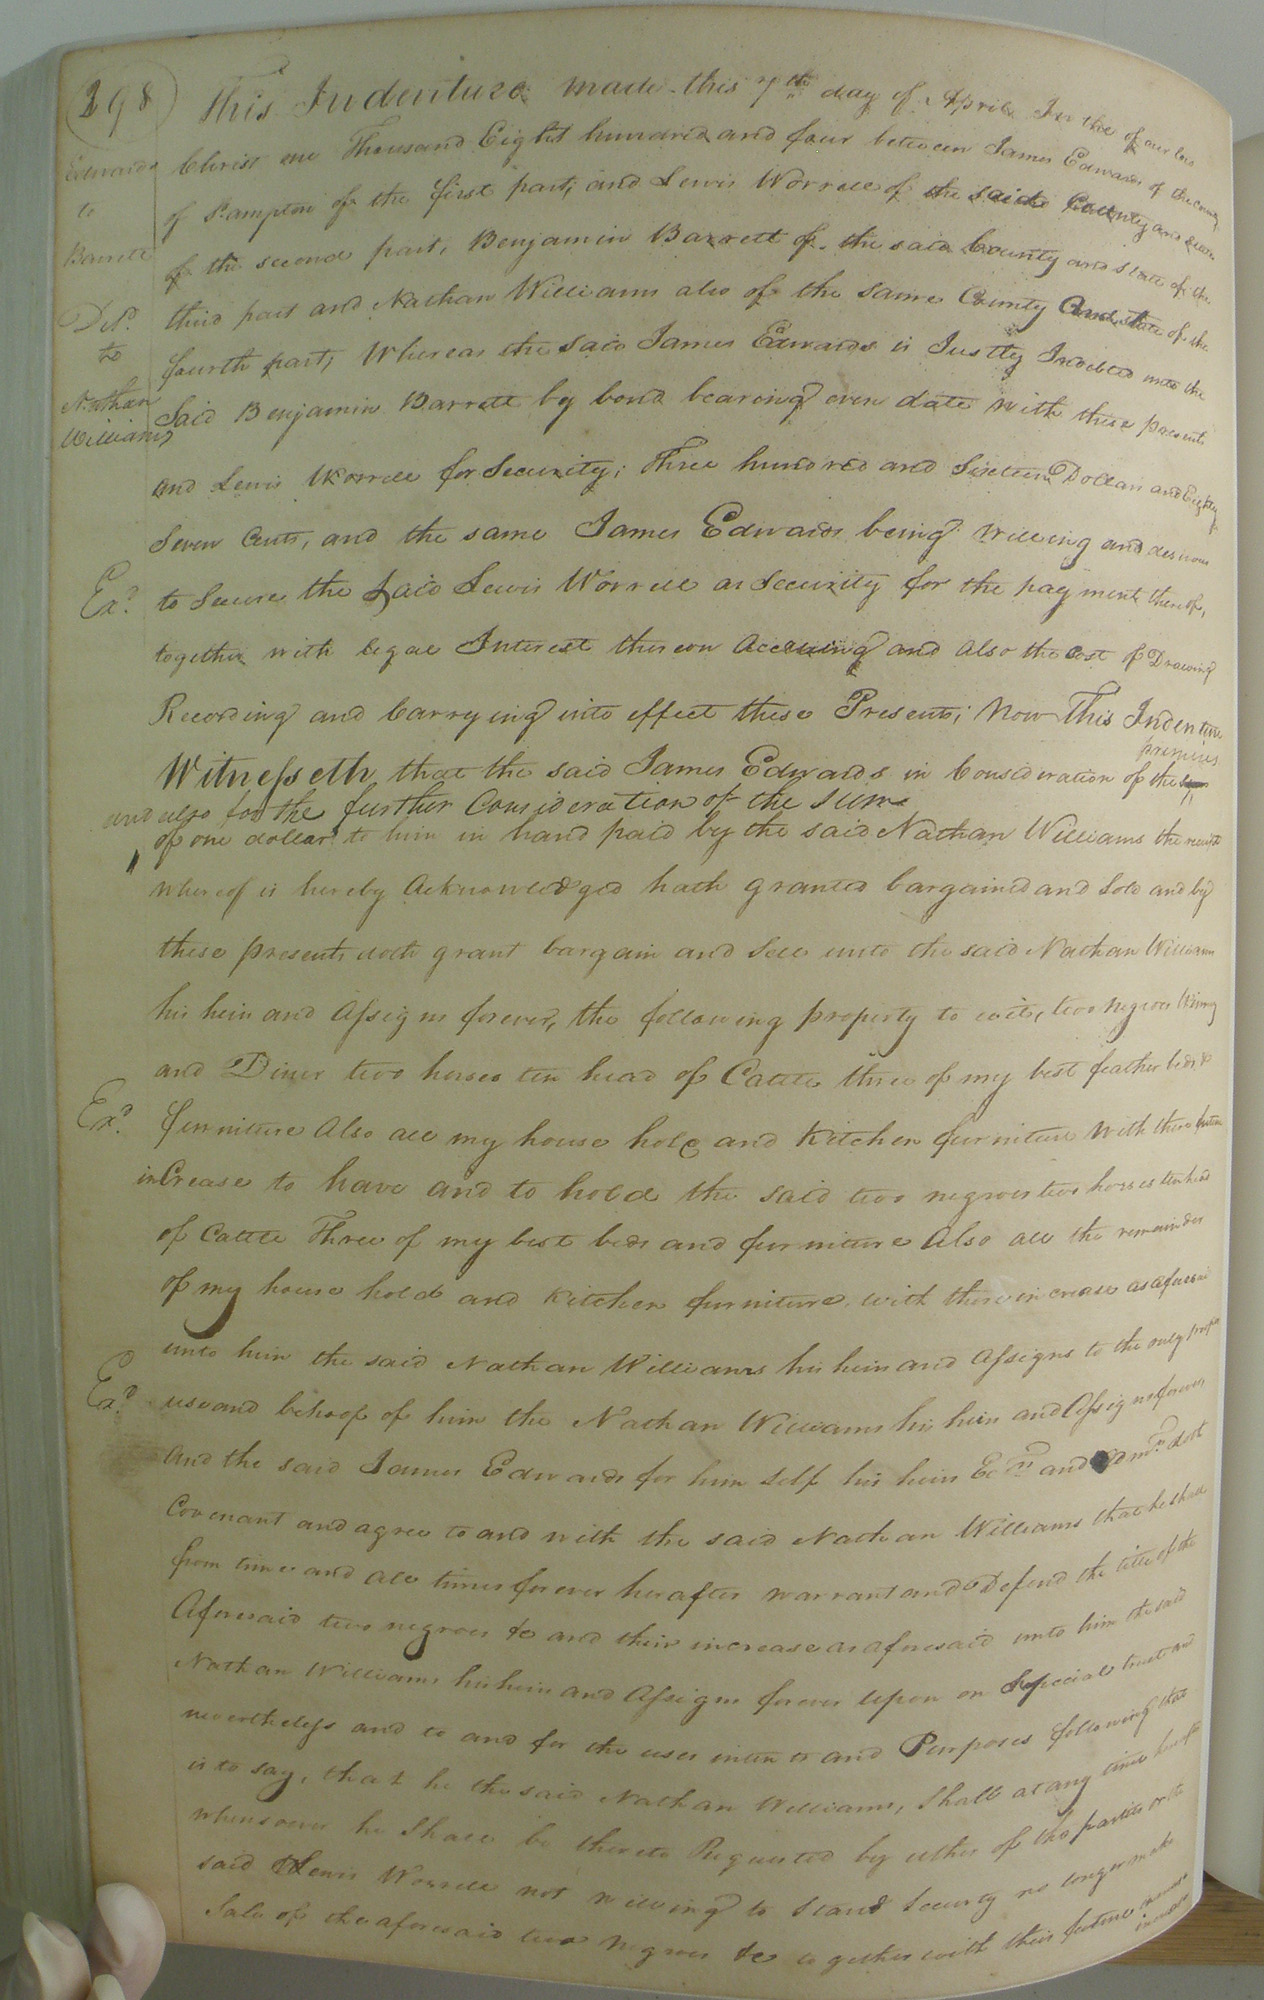 298
This Indenture made this 7th day of April In the of our Lord
Edwards
to
Barrett
Christ one Thousand Eight hundred and four between James Edwards of the county
of S.ampton of the first part; and Lewis Worrell of the said County and State
of the second part, Benjamin Barrett of the said County and State of the
third part and Nathan Williams also of the same County and State of the
Del.d
to
Nathan
Williams
fourth part; Whereas the said James Edwards is Justly Indebted unto the
Said Benjamin Barrett by bond bearing even date with these presents
and Lewis Worrell for Security; Three hundred and Sixteen Dollars and Eighty
Seven Cents, and the same James Edwards being willing and desirous
Ex.d
to Secure the Said Lewis Worrell as Security for the payment thereof,
together with legal Interest thereon Accruing and also the cost of Drawing
Recording and Carrying into effect these Presents; Now This Indenture
Witnesseth that the said James Edwards in Consideration of the premises
and also for the further Consideration of the sum
of one dollar to him in hand paid by the said Nathan Williams the receipt
whereof is hereby Acknowledged hath granted bargained and Sold and by
these presents doth grant bargain and Sell unto the said Nathan Williams
his heirs and Assigns forever, the following property to wit, two negroes
and Diner two horses ten head of Cattle three of my best feather beds &
Ex.d
furniture Also all my house hold and Kitchen furniture with there future
inCrease to have and to hold the said two negroes two horses ten head
of Cattle Three of my best beds and furniture Also all the remainder
of my house hold and Kitchen furniture with there increase as aforesaid
unto him the said Nathan Williams his heirs and Assigns to the only proper
Ex.d
use and behoof of him the Nathan Williams his heirs and Assigns forever,
And the said James Edwards for him Self his heirs Ex.rs and Adm.rs doth
Covenant and agree to and with the said Nathan Williams that he shall
from time and all times forever herafter warrant and Defend the title of the
Aforesaid two negroes &c and their increase as aforesaid unto him the said
Nathan Williams his heirs and Assigns forever upon on Special trust and
nevertheless and to and for the uses intents and Purposes following that
is to say, that he the said Nathan Williams, Shall at any time hereafter
whensoever he Shall be thereto Requested by either of the parties or the
said Lewis Worrell not willing to Stand Security no longer make
Sale of the aforesaid two negroes &c together with their future increase